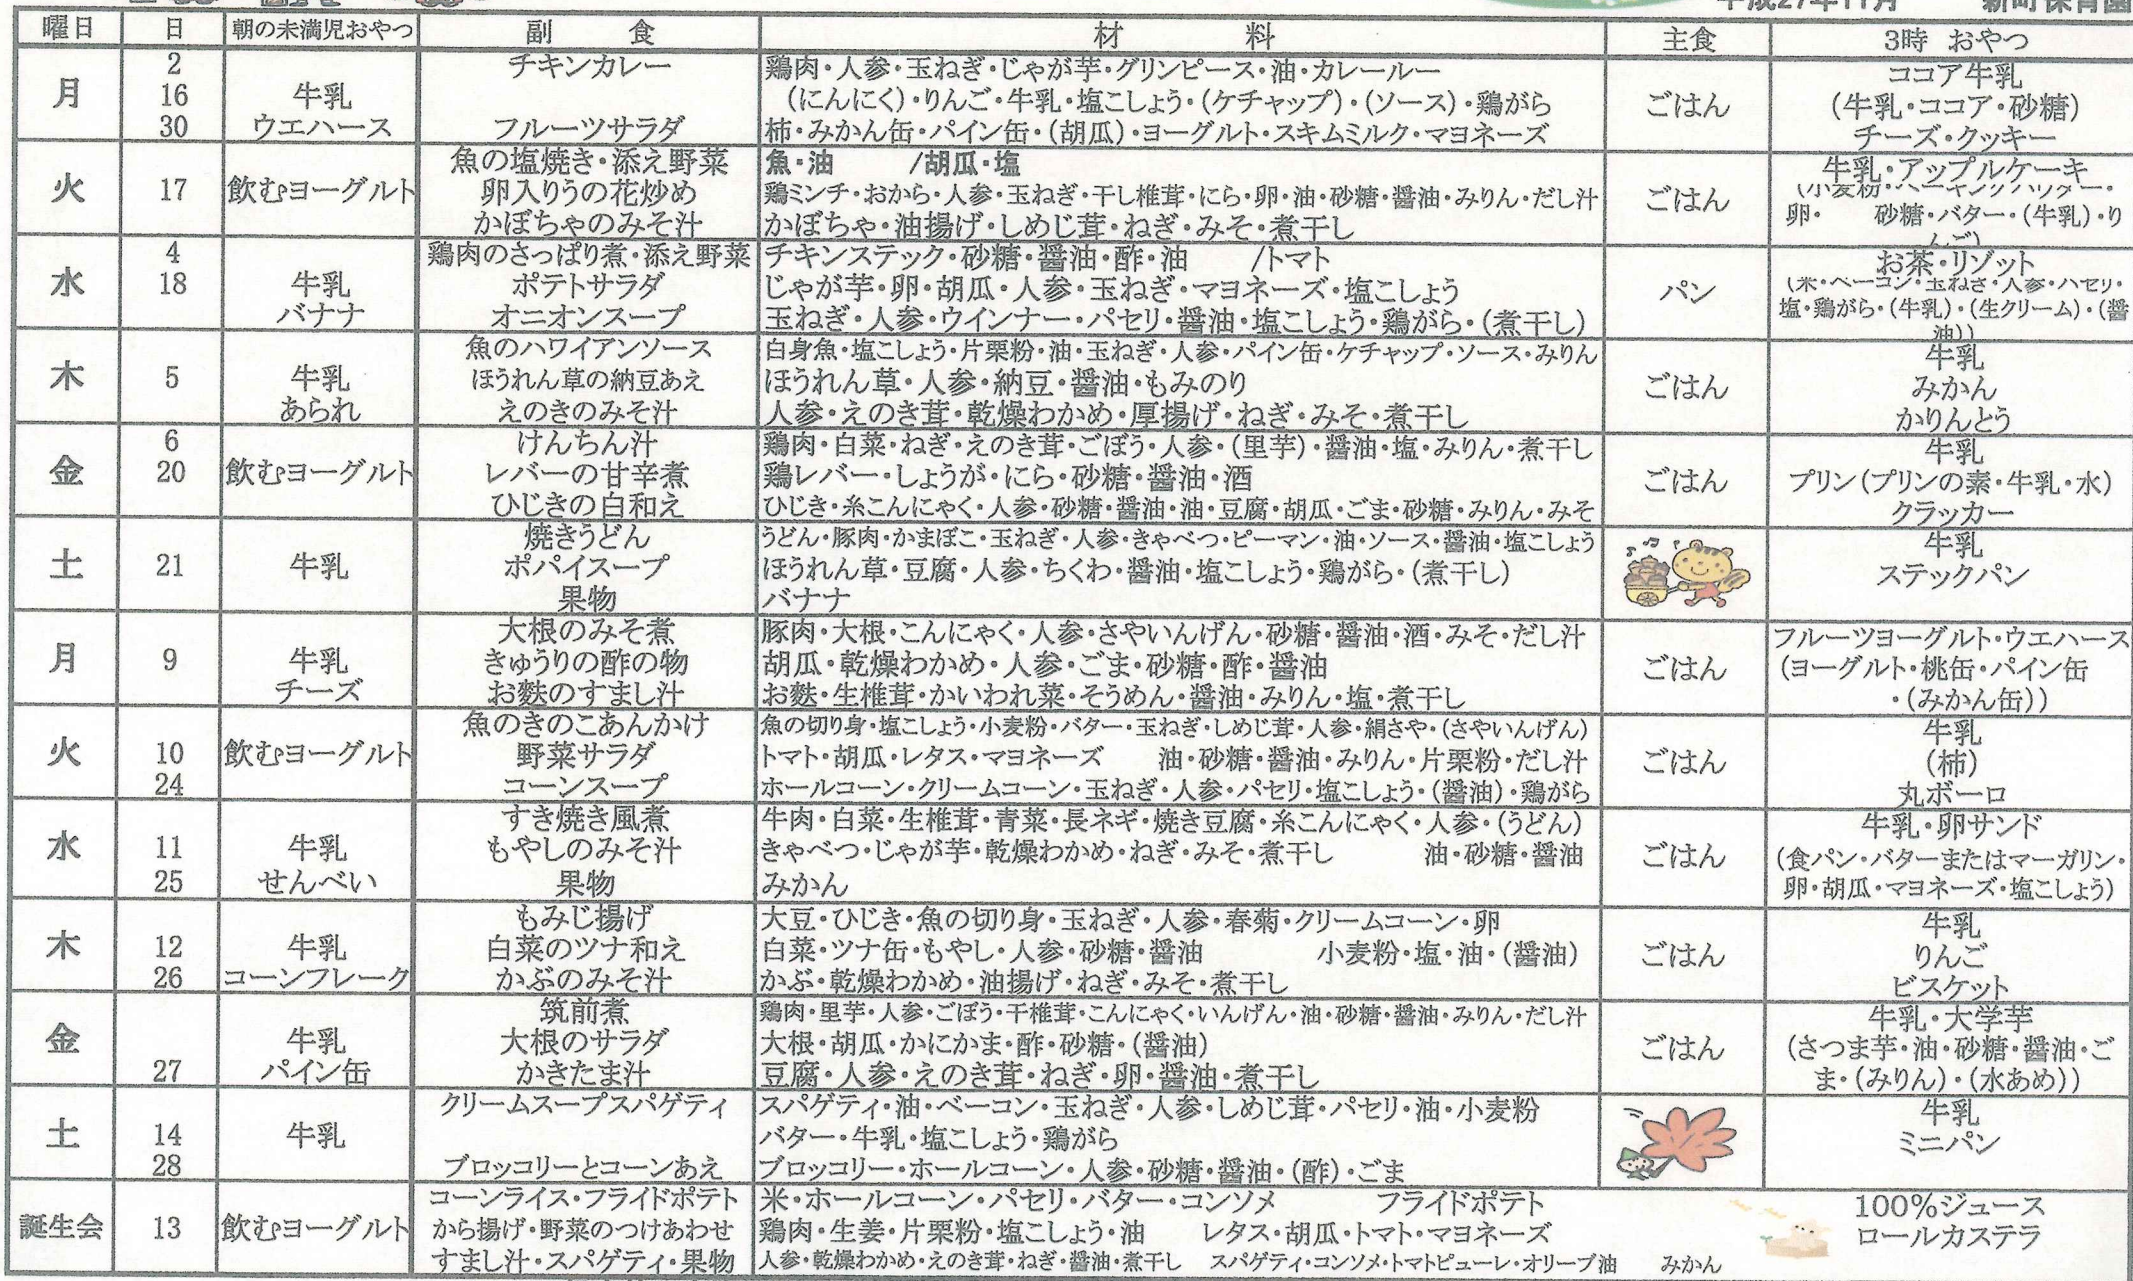 平成27年11月 新町保育園
曜日 日 朝の未満児おやつ 副 食 材 料 主食 3時 おやつ
月
2
16
30
牛乳
ウエハース
チキンカレー
フルーツサラダ
鶏肉・人参・玉ねぎ・じゃが芋・グリンピース・油・カレールー
(にんにく)・りんご・牛乳・塩こしょう・(ケチャップ)・(ソース)・鶏がら
柿・みかん缶・パイン缶・(胡瓜)・ヨーグルト・スキムミルク・マヨネーズ
ごはん
ココア牛乳
(牛乳・ココア・砂糖)
チーズ・クッキー
火
17
飲むヨーグルト
魚の塩焼き・添え野菜
卵入りうの花炒め
かぼちゃのみそ汁
魚・油 /胡瓜・塩
鶏ミンチ・おから・人参・玉ねぎ・干し椎茸・にら・卵・油・砂糖・醤油・みりん・だし汁
かぼちゃ・油揚げ・しめじ茸・ねぎ・みそ・煮干し
ごはん
牛乳・アップルケーキ
(小麦粉・ベーキングパウダー・
卵・ 砂糖・バター・(牛乳)・り
んご)
水
4
18
牛乳
バナナ
鶏肉のさっぱり煮・添え野菜
ポテトサラダ
オニオンスープ
チキンステック・砂糖・醤油・酢・油 /トマト
じゃが芋・卵・胡瓜・人参・玉ねぎ・マヨネーズ・塩こしょう
玉ねぎ・人参・ウインナー・パセリ・醤油・塩こしょう・鶏がら・(煮干し)
パン
お茶・リゾット
(米・ベーコン・玉ねぎ・人参・パセリ・
塩・鶏がら・(牛乳)・(生クリーム)・(醤
油))
木
5
牛乳
あられ
魚のハワイアンソース
ほうれん草の納豆あえ
えのきのみそ汁
白身魚・塩こしょう・片栗粉・油・玉ねぎ・人参・パイン缶・ケチャップ・ソース・みりん
ほうれん草・人参・納豆・醤油・もみのり
人参・えのき茸・乾燥わかめ・厚揚げ・ねぎ・みそ・煮干し
ごはん
牛乳
みかん
かりんとう
金
6
20
飲むヨーグルト
けんちん汁
レバーの甘辛煮
ひじきの白和え
鶏肉・白菜・ねぎ・えのき茸・ごぼう・人参・(里芋)・醤油・塩・みりん・煮干し
鶏レバー・しょうが・にら・砂糖・醤油・酒
ひじき・糸こんにゃく・人参・砂糖・醤油・油・豆腐・胡瓜・ごま・砂糖・みりん・みそ
ごはん
牛乳
プリン(プリンの素・牛乳・水)
クラッカー
土
21
牛乳
焼きうどん
ポパイスープ
果物
うどん・豚肉・かまぼこ・玉ねぎ・人参・きゃべつ・ピーマン・油・ソース・醤油・塩こしょう
ほうれん草・豆腐・人参・ちくわ・醤油・塩こしょう・鶏がら・(煮干し)
バナナ
牛乳
ステックパン
月
9
牛乳
チーズ
大根のみそ煮
きゅうりの酢の物
お麩のすまし汁
豚肉・大根・こんにゃく・人参・さやいんげん・砂糖・醤油・酒・みそ・だし汁
胡瓜・乾燥わかめ・人参・ごま・砂糖・酢・醤油
お麩・生椎茸・かいわれ菜・そうめん・醤油・みりん・塩・煮干し
ごはん
フルーツヨーグルト・ウエハース
(ヨーグルト・桃缶・パイン缶
・(みかん缶))
火
10
24
飲むヨーグルト
魚のきのこあんかけ
野菜サラダ
コーンスープ
魚の切り身・塩こしょう・小麦粉・バター・玉ねぎ・しめじ茸・人参・絹さや・(さやいんげん)
トマト・胡瓜・レタス・マヨネーズ 油・砂糖・醤油・みりん・片栗粉・だし汁
ホールコーン・クリームコーン・玉ねぎ・人参・パセリ・塩こしょう・(醤油)・鶏がら
ごはん
牛乳
(柿)
丸ボーロ
水
11
25
牛乳
せんべい
すき焼き風煮
もやしのみそ汁
果物
牛肉・白菜・生椎茸・青菜・長ネギ・焼き豆腐・糸こんにゃく・人参・(うどん)
きゃべつ・じゃが芋・乾燥わかめ・ねぎ・みそ・煮干し 油・砂糖・醤油
みかん
ごはん
牛乳・卵サンド
(食パン・バターまたはマーガリン・
卵・胡瓜・マヨネーズ・塩こしょう)
木
12
26
牛乳
コーンフレーク
もみじ揚げ
白菜のツナ和え
かぶのみそ汁
大豆・ひじき・魚の切り身・玉ねぎ・人参・春菊・クリームコーン・卵
白菜・ツナ缶・もやし・人参・砂糖・醤油 小麦粉・塩・油・(醤油)
かぶ・乾燥わかめ・油揚げ・ねぎ・みそ・煮干し
ごはん
牛乳
りんご
ビスケット
金
27
牛乳
パイン缶
筑前煮
大根のサラダ
かきたま汁
鶏肉・里芋・人参・ごぼう・干椎茸・こんにゃく・いんげん・油・砂糖・醤油・みりん・だし汁
大根・胡瓜・かにかま・酢・砂糖・(醤油)
豆腐・人参・えのき茸・ねぎ・卵・醤油・煮干し
ごはん
牛乳・大学芋
(さつま芋・油・砂糖・醤油・ご
ま・(みりん)・(水あめ))
土
14
28
牛乳
クリームスープスパゲティ
ブロッコリーとコーンあえ
スパゲティ・油・ベーコン・玉ねぎ・人参・しめじ茸・パセリ・油・小麦粉
バター・牛乳・塩こしょう・鶏がら
ブロッコリー・ホールコーン・人参・砂糖・醤油・(酢)・ごま
牛乳
ミニパン
誕生会
13
飲むヨーグルト
コーンライス・フライドポテト
から揚げ・野菜のつけあわせ
すまし汁・スパゲティ・果物
米・ホールコーン・パセリ・バター・コンソメ フライドポテト
鶏肉・生姜・片栗粉・塩こしょう・油 レタス・胡瓜・トマト・マヨネーズ
人参・乾燥わかめ・えのき茸・ねぎ・醤油・煮干し スパゲティ・コンソメ・トマトピューレ・オリーブ油 みかん
100%ジュース
ロールカステラ